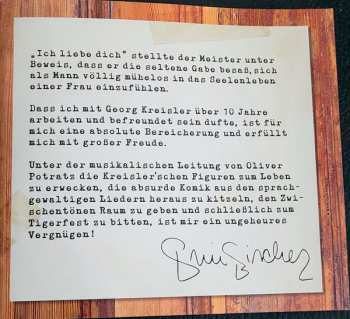 „Ich liebe dich“ stellte der Meister unter
Beweis, dass er die seltene Gabe besaß,sich
als Mann völlig mühelos in das Seelenleben
einer Frau einzufühlen.
Dass ich mit Georg Kreisler über 10 Jahre
arbeiten und befreundet sein dufte, ist für
mich eine absolute Bereicherung und erfüllt
mich mit großer Freude.
Unter der musikalischen Leitung von Oliver
Potratz die Kreisler'schen Figuren zum Leben
zu erwecken, die absurde Komik aus den sprach-
gewaltigen Liedern heraus zu kitzeln, den Zwi-
schentönen Raum zu geben und schließlich zum
Tigerfest zu bitten, ist mir ein ungeheures
Vergnügen!